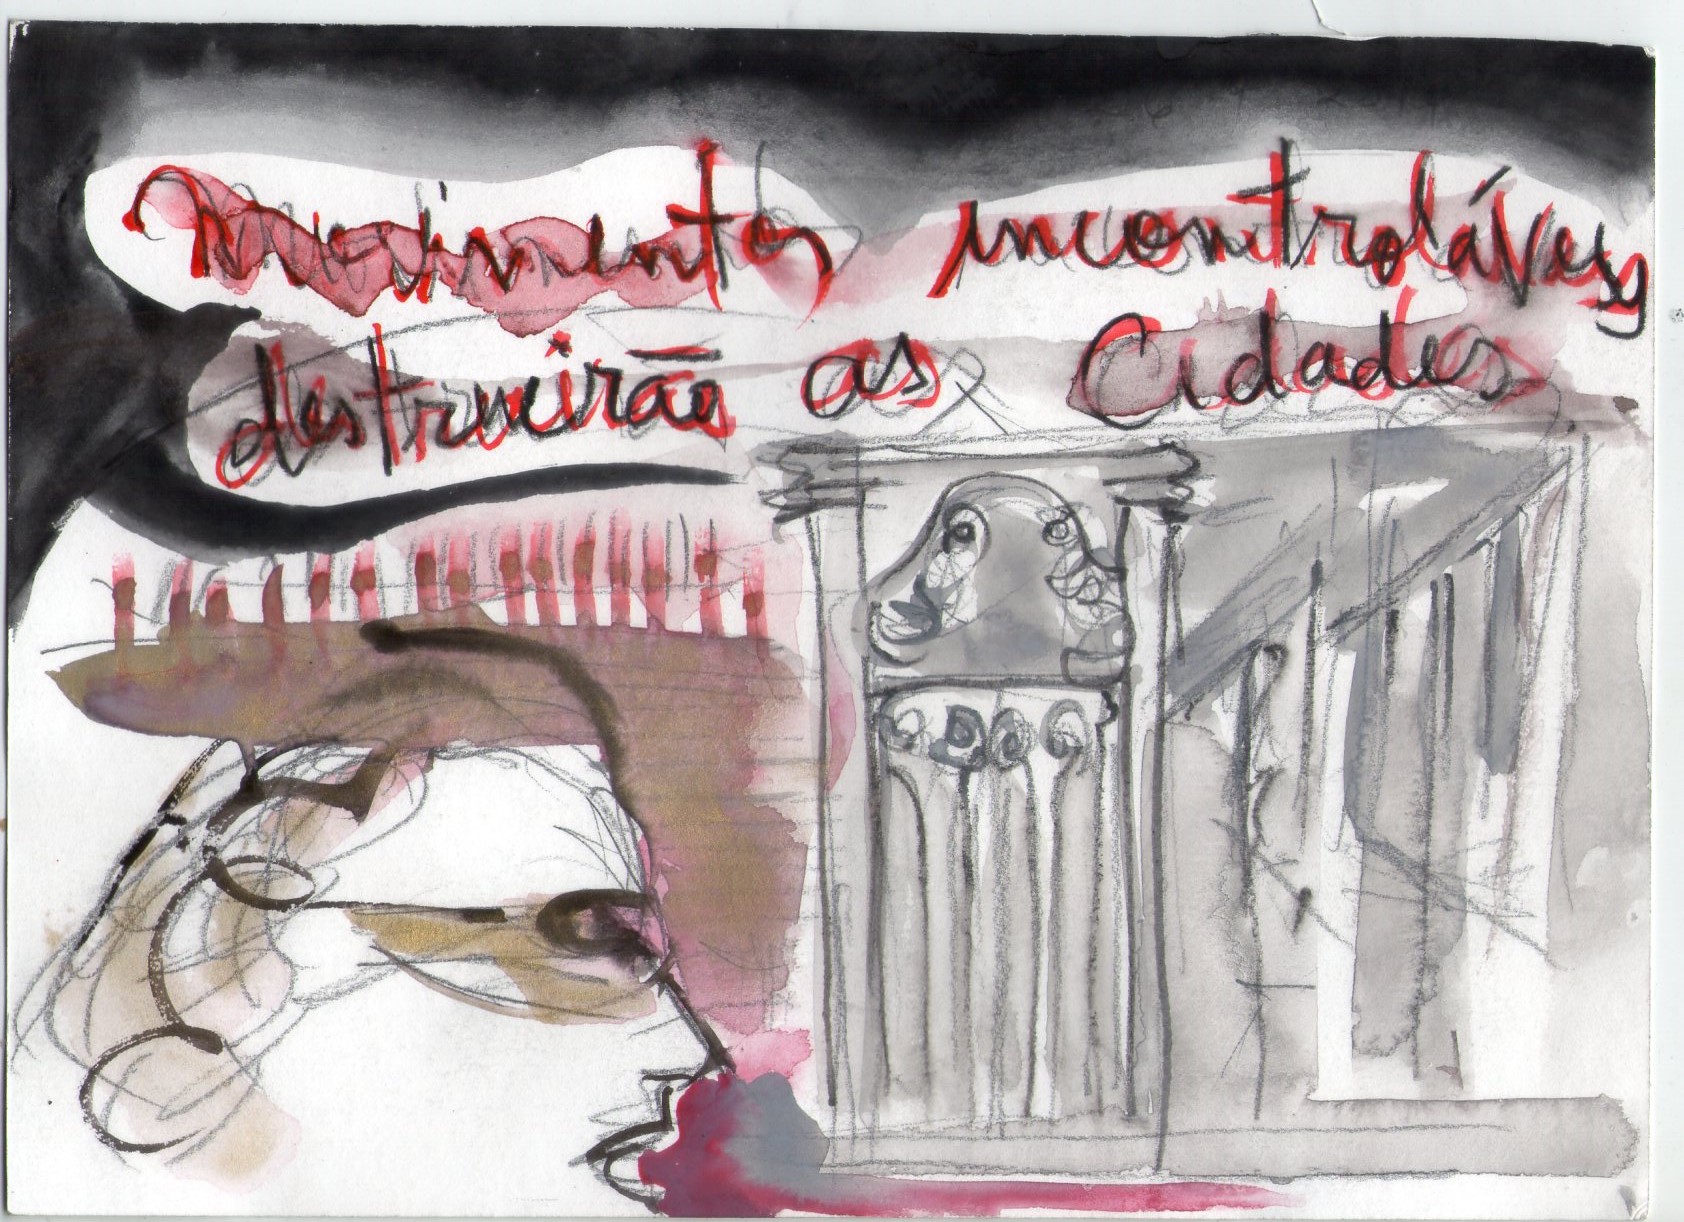 movimentos incontroláveis
destruirão as Cidades